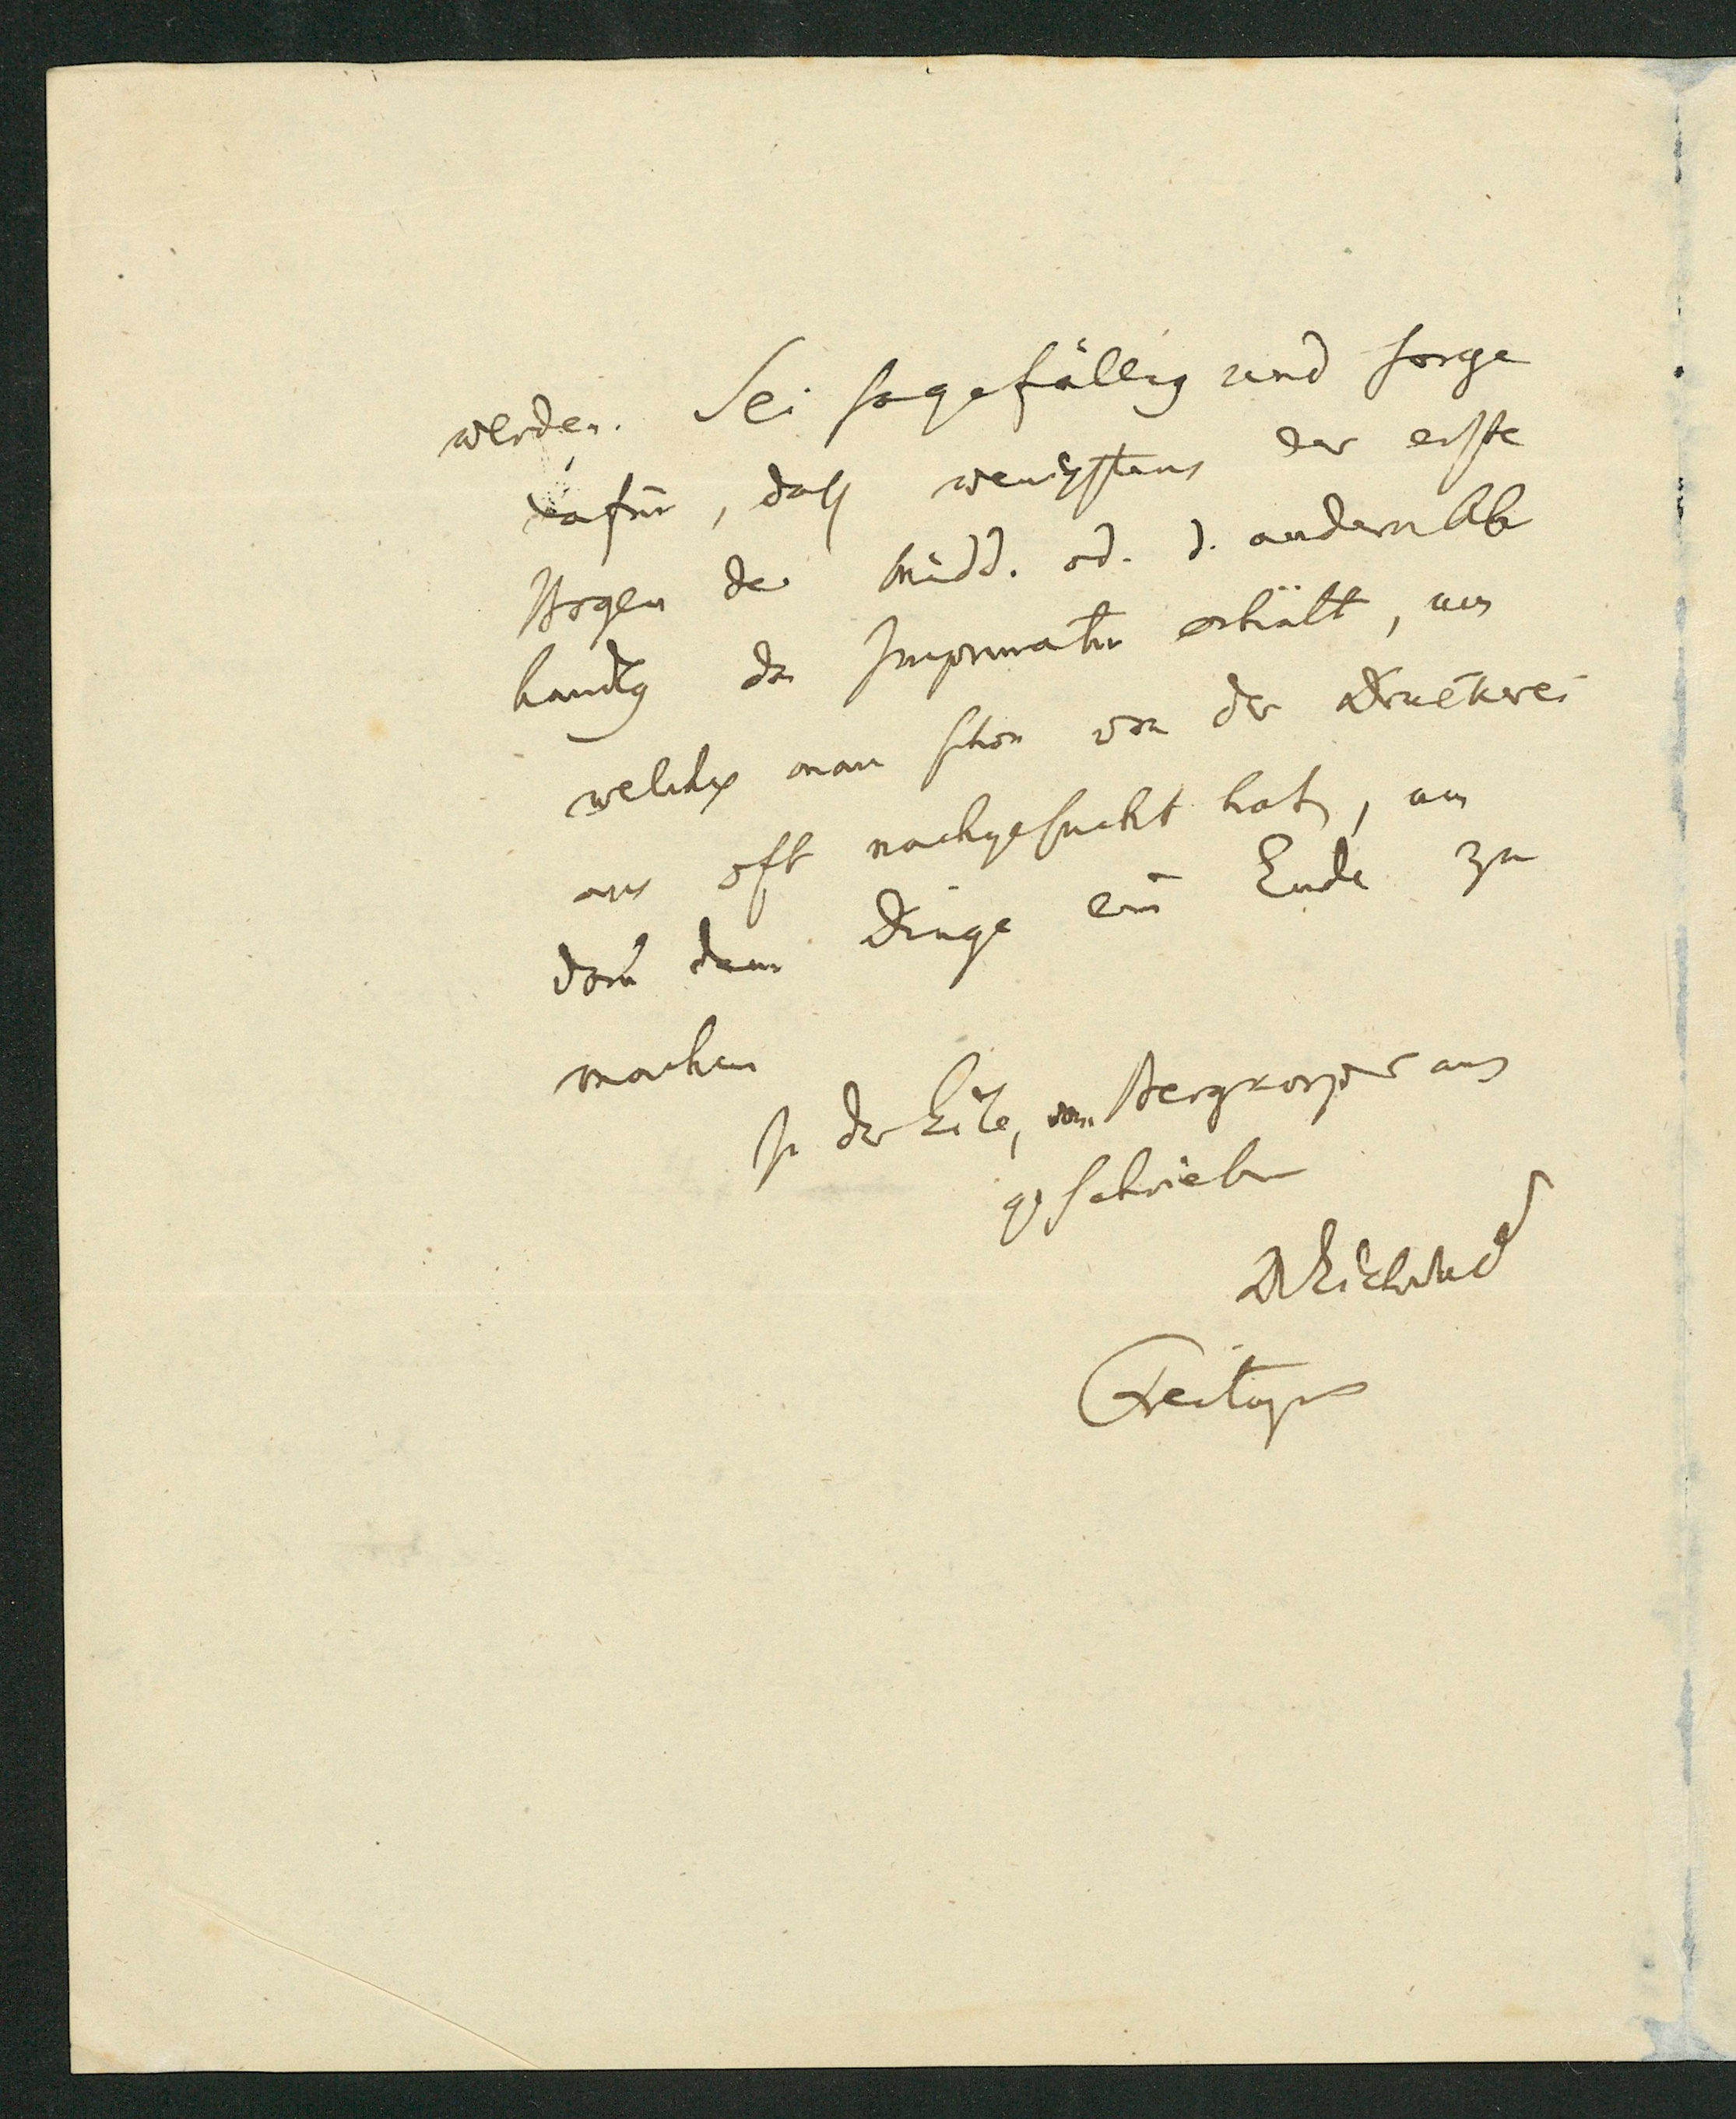 werden. Sei so gefällig und sorge
dafür, daß wenigstens der erste
Bogen der Midd. od. d. andern Ab
handlg das Imprimatur erhält, um
welches man schon von der Druckerei
aus oft nachgesucht hat, um
doch dem Dinge ein Ende zu
machen
In der Eile, vom Bergkorps aus
geschrieben
DEichwald
Freitags